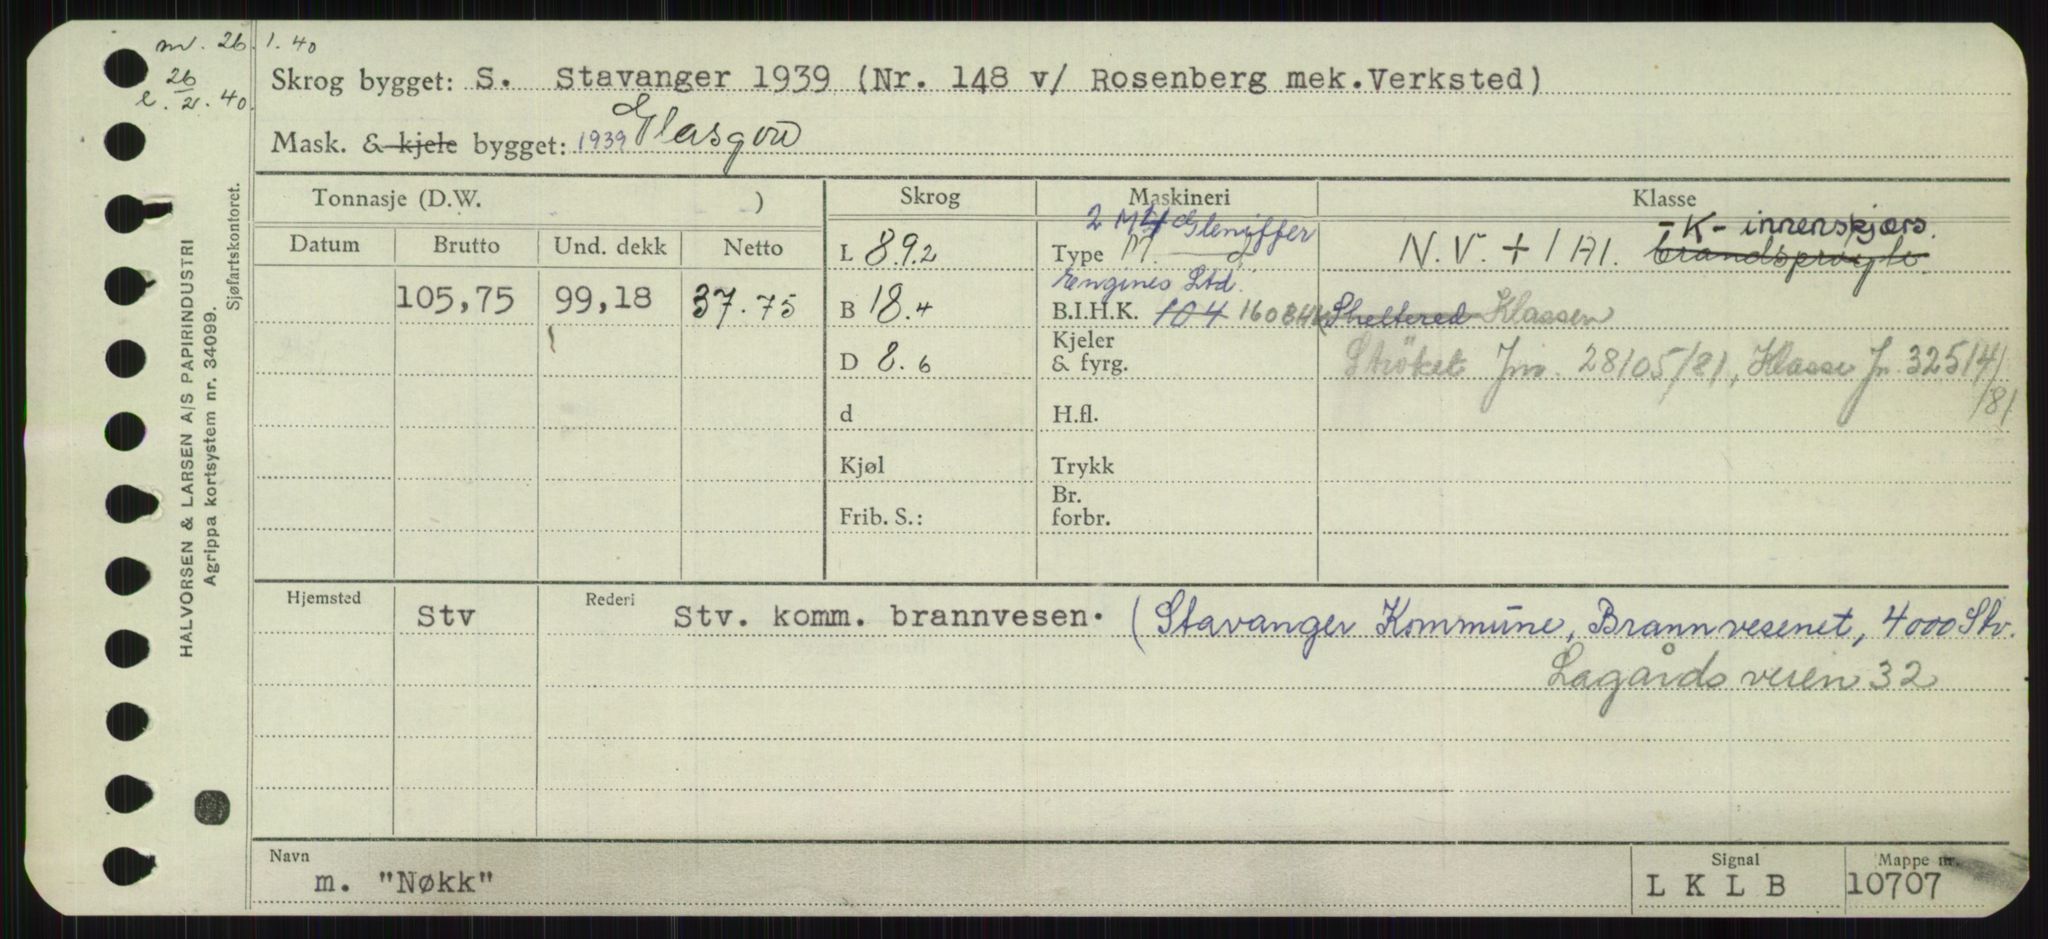 m. 26.1.40
26
e. 2. 40.
Skrog bygget: S. Stavanger 1939 (Nr. 148 v/ Rosenberg mek.Verksted)
Mask. & kjele bygget: 1939 Glasgow
Tonnasje (D.W. ) Skrog Maskineri Klasse
Datum Brutto Und. dekk Netto
2 Gleniffer
-K- innenskjærs.
L 89.2 Type M. N.V. + 1A1.
Engines Ltd.
105,75 99,18 37.75 B 18.4 B.I.H.K. 104 160 BHK Sheltered Klassen
Kjeler
D 8.6 & fyrg. Strøket Jnr. 28105/81, Klasse Jn. 32514/
/81
d H.fl.
Kjøl Trykk
Br.
Frib. S.: forbr.
Hjemsted Stv Rederi Stv. komm. brannvesen. (Stavanger Kommune, Brannvesenet, 4000 Stv.
Lagårdsveien 32
Navn Signal Mappe nr.
m. "Nøkk" L K L B 10707
HALVORSEN & LARSEN A/S PAPIRINDUSTRI
Agrippa kortsystem nr. 34099.
Sjøfartskontoret.